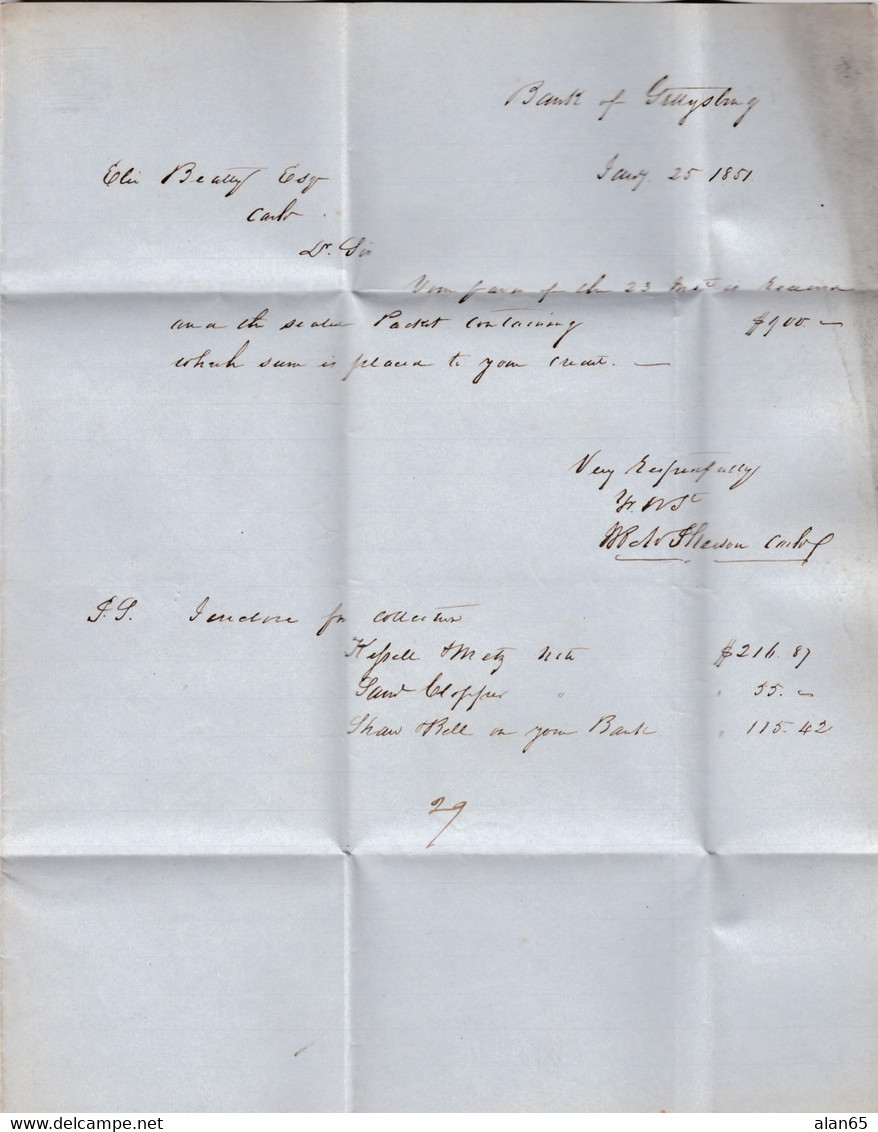 Bank of Gettysburg
Jany. 25 1851.
Elie Beatty Esqr
Cashr.
Dr. Sir
Your favor of the 23 Inst is Received
and the sealed Packet Containing $900. —
which sum is placed to your Credit. —
Very Respectfully
Yr. Obt St
McPherson Cashr
P.S. I enclose for Collection
Kessell & Metz note $216.87
Saml Clopper " " 55. —
Shaw & Bell on your Bank " 115.42
29
alan65